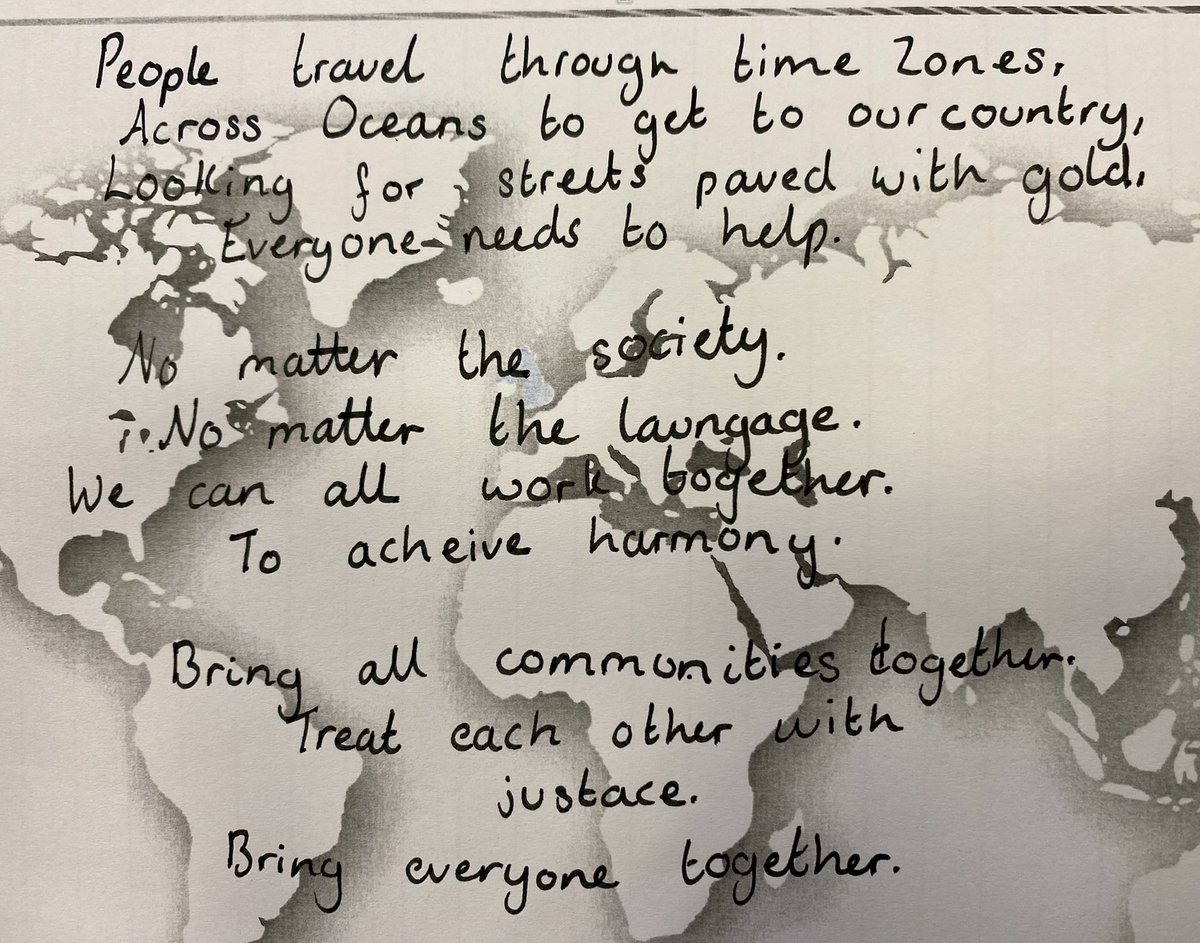 People travel through time zones,
Across Oceans to get to our country,
Looking for streets paved with gold,
Everyone needs to help.
No matter the society.
No matter the laungage.
We can all work together.
To acheive harmony.
Bring all communities together.
Treat each other with
justace.
Bring everyone together.